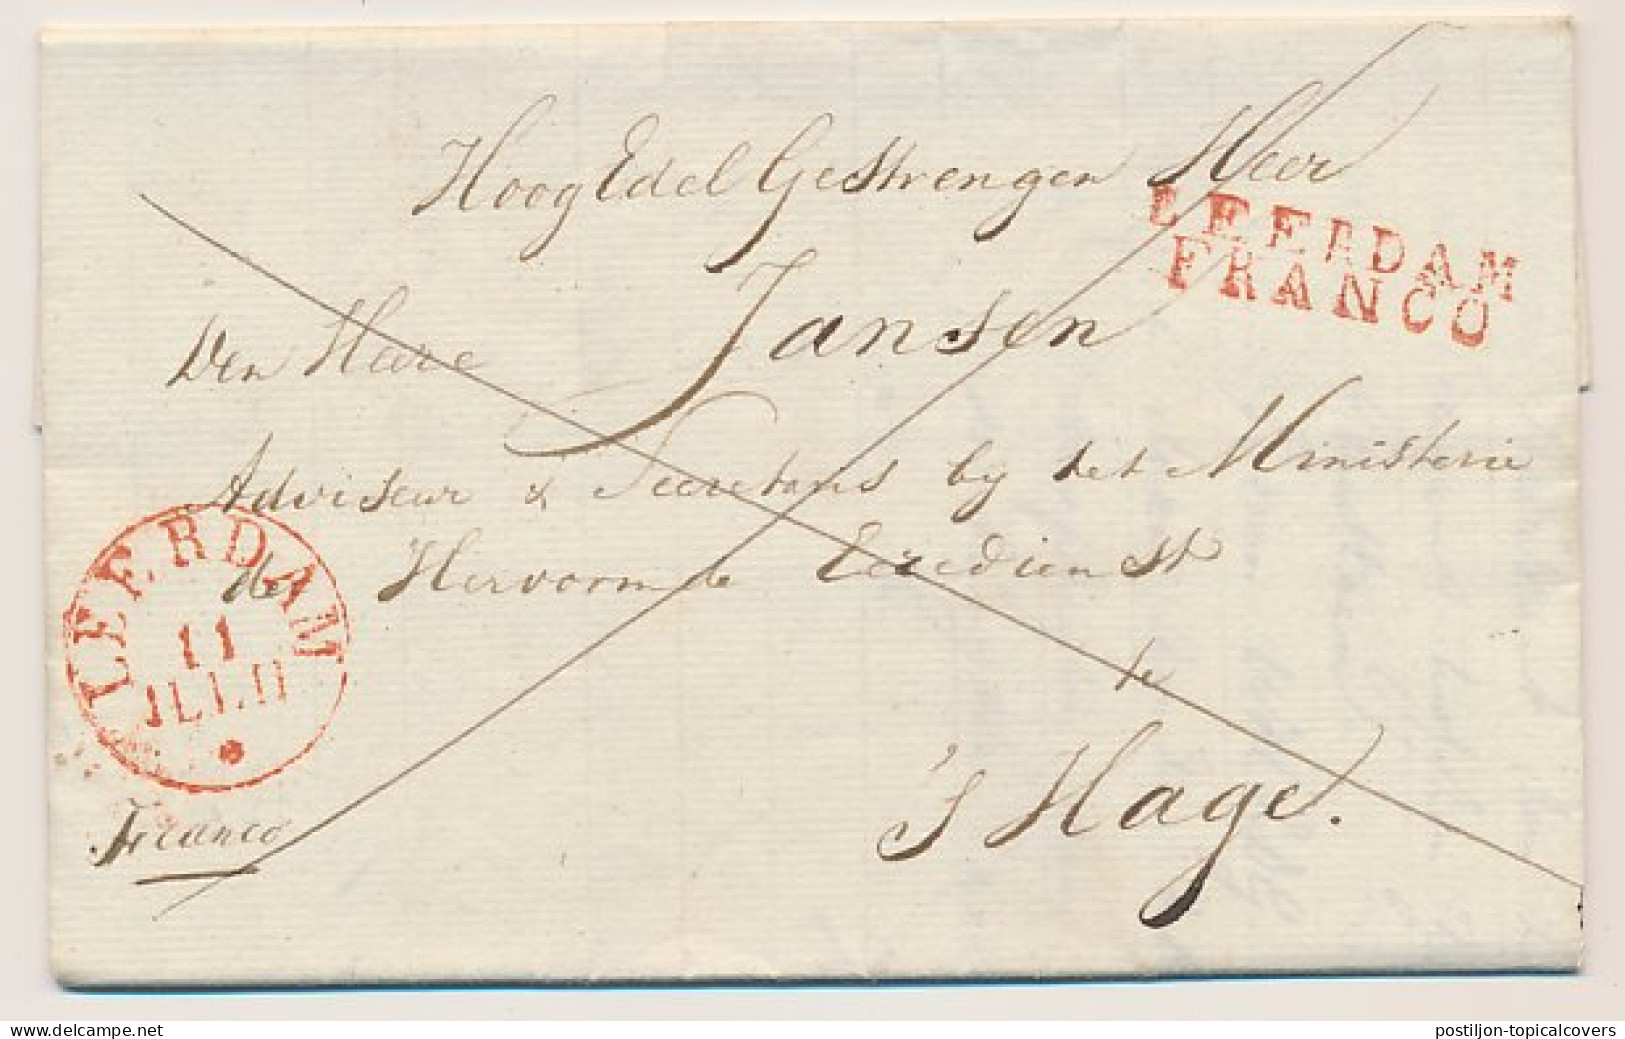 HoogEdelGestrengen Heer
LEERDAM
FRANCO
Jansen
Den Heere
Adviseur & Secretaris by het Ministerie
der Hervormde Eeredienst
LEERDAM
11
JULIJ
te
's Hage.
Franco
www.delcampe.net
postiljon-topicalcovers